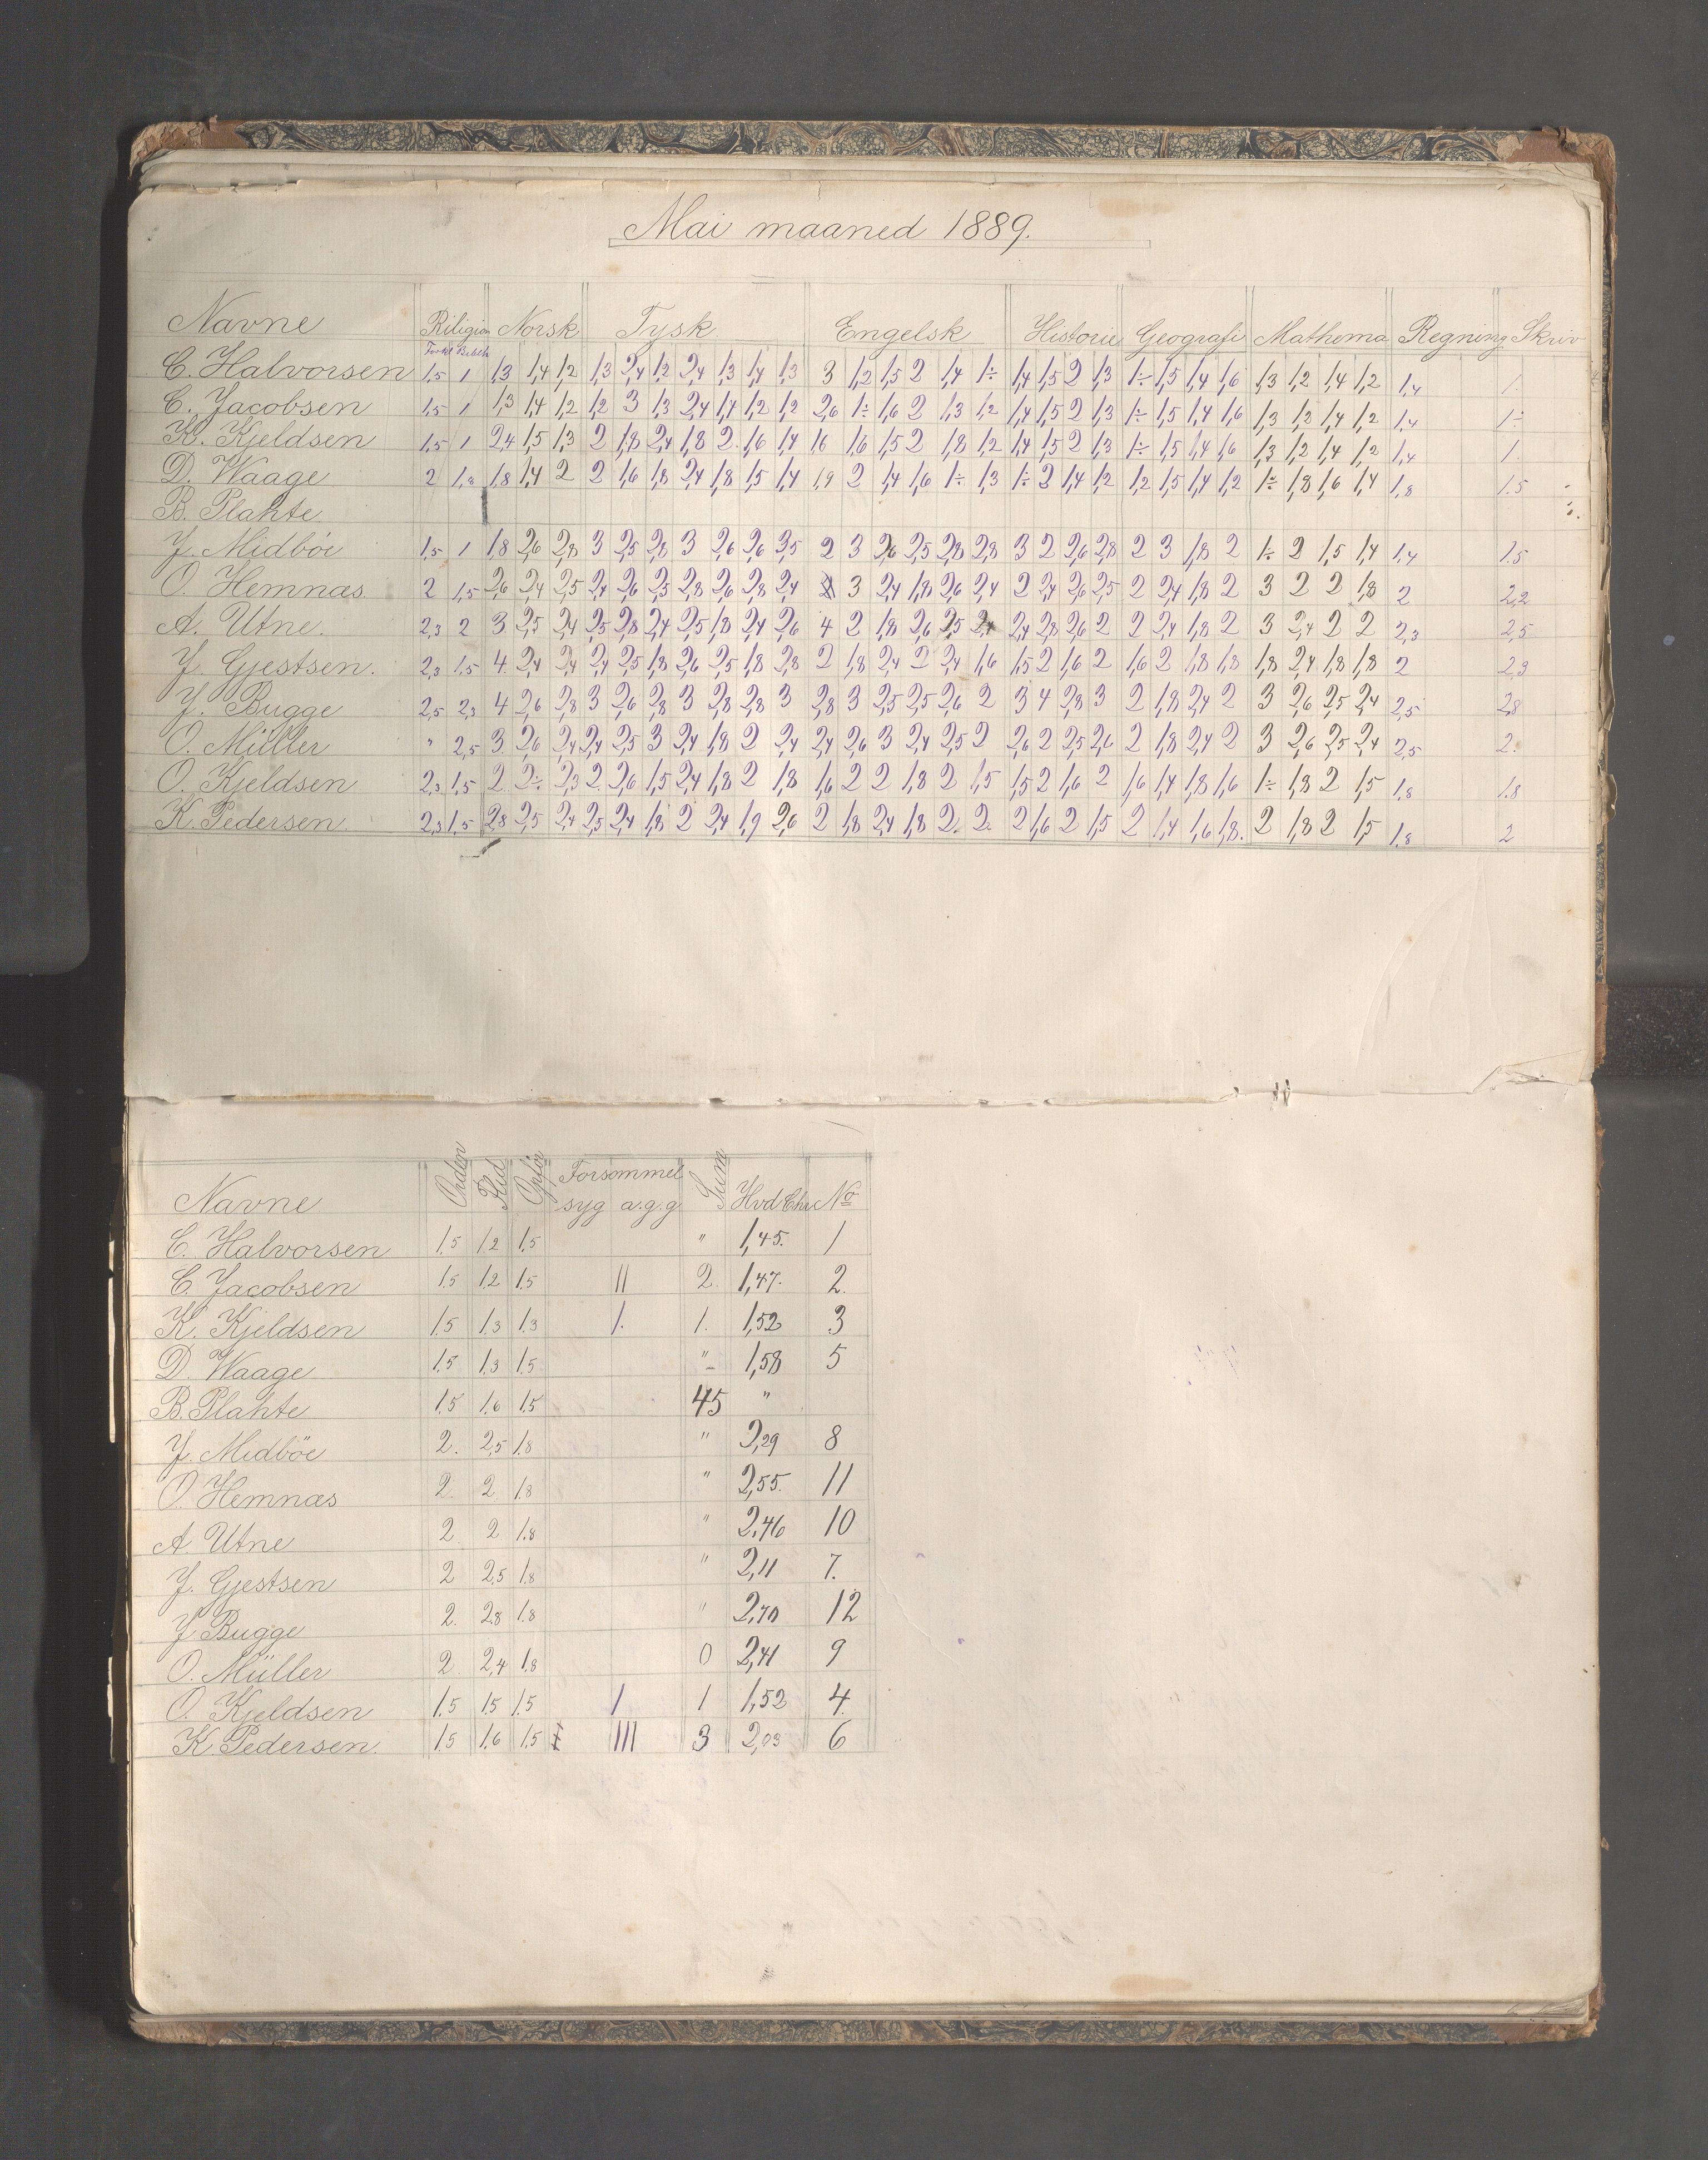 Mai maaned 1889.
Navne Religion Norsk Tysk Engelsk Historie Geografi Mathema Regning Skriv
C. Halvorsen 1,5 1 1,3 1,4 1,2 1,3 2,4 1,2 2,4 1,3 1,4 1,3 3 1,2 1,5 2 1,4 1÷ 1,4 1,5 2 1,3 1÷ 1,5 1,4 1,6 1,3 1,2 1,4 1,2 1,4 1.
C. Jacobsen 1,5 1 1,3 1,4 1,2 1,2 3 1,3 2,4 1,4 1,2 1,2 2,6 1÷ 1,6 2 1,3 1,2 1,4 1,5 2 1,3 1÷ 1,5 1,4 1,6 1,3 1,2 1,4 1,2 1,4 1÷
K. Kjeldsen 1,5 1 2,4 1,5 1,3 2 1,8 2,4 1,8 2. 1,6 1,4 1,6 1,6 1,5 2 1,8 1,2 1,4 1,5 2 1,3 1÷ 1,5 1,4 1,6 1,3 1,2 1,4 1,2 1,4 1.
D. Waage 2 1,8 1,8 1,4 2 2 1,6 1,8 2,4 1,8 1,5 1,4 1,9 2 1,4 1,6 1÷ 1,3 1÷ 2 1,4 1,2 1,2 1,5 1,4 1,2 1÷ 1,8 1,6 1,4 1,8 1.5
B. Plahte.
J. Midböe 1,5 1 1,8 2,6 2,8 3 2,5 2,8 3 2,6 2,6 3,5 2 3 2,6 2,5 2,8 2,8 3 2 2,6 2,8 2 3 1,8 2 1÷ 2 1,5 1,4 1,4 1.5
O. Hemnæs. 2 1,5 2,6 2,4 2,5 2,4 2,6 2,5 2,8 2,6 2,8 2,4 3 2,4 1,8 2,6 2,4 2 2,4 2,6 2,5 2 2,4 1,8 2 3 2 2 1,8 2 2,2
A. Utne. 2,3 2 3 2,5 2,4 2,5 2,8 2,4 2,5 1,8 2,4 2,6 4 2 1,8 2,6 2,5 2,4 2,4 2,8 2,6 2 2 2,4 1,8 2 3 2,4 2 2 2,3 2,5
J. Gjestsen. 2,3 1.5 4. 2,4 2,4 2,4 2,5 1,8 2,6 2,5 1,8 2,8 2 1,8 2,4 2 2,4 1,6 1,5 2 1,6 2 1,6 2 1,8 1,8 1,8 2,4 1,8 1,8 2 2,3
J. Bugge 2,5 2,3 4 2,6 2,8 3 2,6 2,8 3 2,8 2,8 3 2,8 3 2,5 2,5 2,6 2 3 4 2,8 3 2 1,8 2,4 2 3 2,6 2,5 2,4 2,5 2,8
O. Müller " 2,5 3 2,6 2,4 2,4 2,5 3 2,4 1,8 2 2,4 2,4 2,6 3 2,4 2,5 2 2,6 2 2,5 2,6 2 1,8 2,4 2 3 2,6 2,5 2,4 2,5 2.
O. Kjeldsen 2,3 1,5 2 2÷ 2,3 2 2,6 1,5 2,4 1,8 2 1,8 1,6 2 2 1,8 2 1,5 1,5 2 1,6 2 1,6 1,4 1,8 1,6 1÷ 1,8 2 1,5 1,8 1.8
K. Pedersen. 2,3 1,5 2,8 2,5 2,4 2,5 2,4 1,8 2 2,4 1,9 2,6 2 1,8 2,4 1,8 2. 2. 2 1,6 2 1,5 2 1,4 1,6 1,8. 2 1,8 2 1,5 1,8 2
Navne Orden Flid Opför Forsömmel Sum Hvd Chr No
syg a.g.g
C. Halvorsen 1.5 1.2 1.5 " 1,45. 1
C. Jacobsen 1.5 1.2 1.5 || 2. 1,47. 2.
K. Kjeldsen 1.5 1.3 1.3 1. 1. 1,52 3
D. Waage 1.5 1.3 1.5 " 1,58 5
B. Plahte 1.5 1.6 1.5 45 "
J. Midböe 2. 2,5 1.8 " 2,29 8
O. Hemnæs 2. 2. 1.8 " 2,55. 11
A. Utne 2 2 1.8 " 2,46 10
J. Gjestsen 2 2,5 1.8 " 2,11 7.
J Bugge 2. 2,8 1.8 " 2,70 12
O. Müller 2 2,4 1.8 0 2,41 9
O. Kjeldsen 1.5 1.5 1.5 1 1 1,52 4.
K Pedersen. 1.5 1.6 1.5 ||| 3 2,03 6